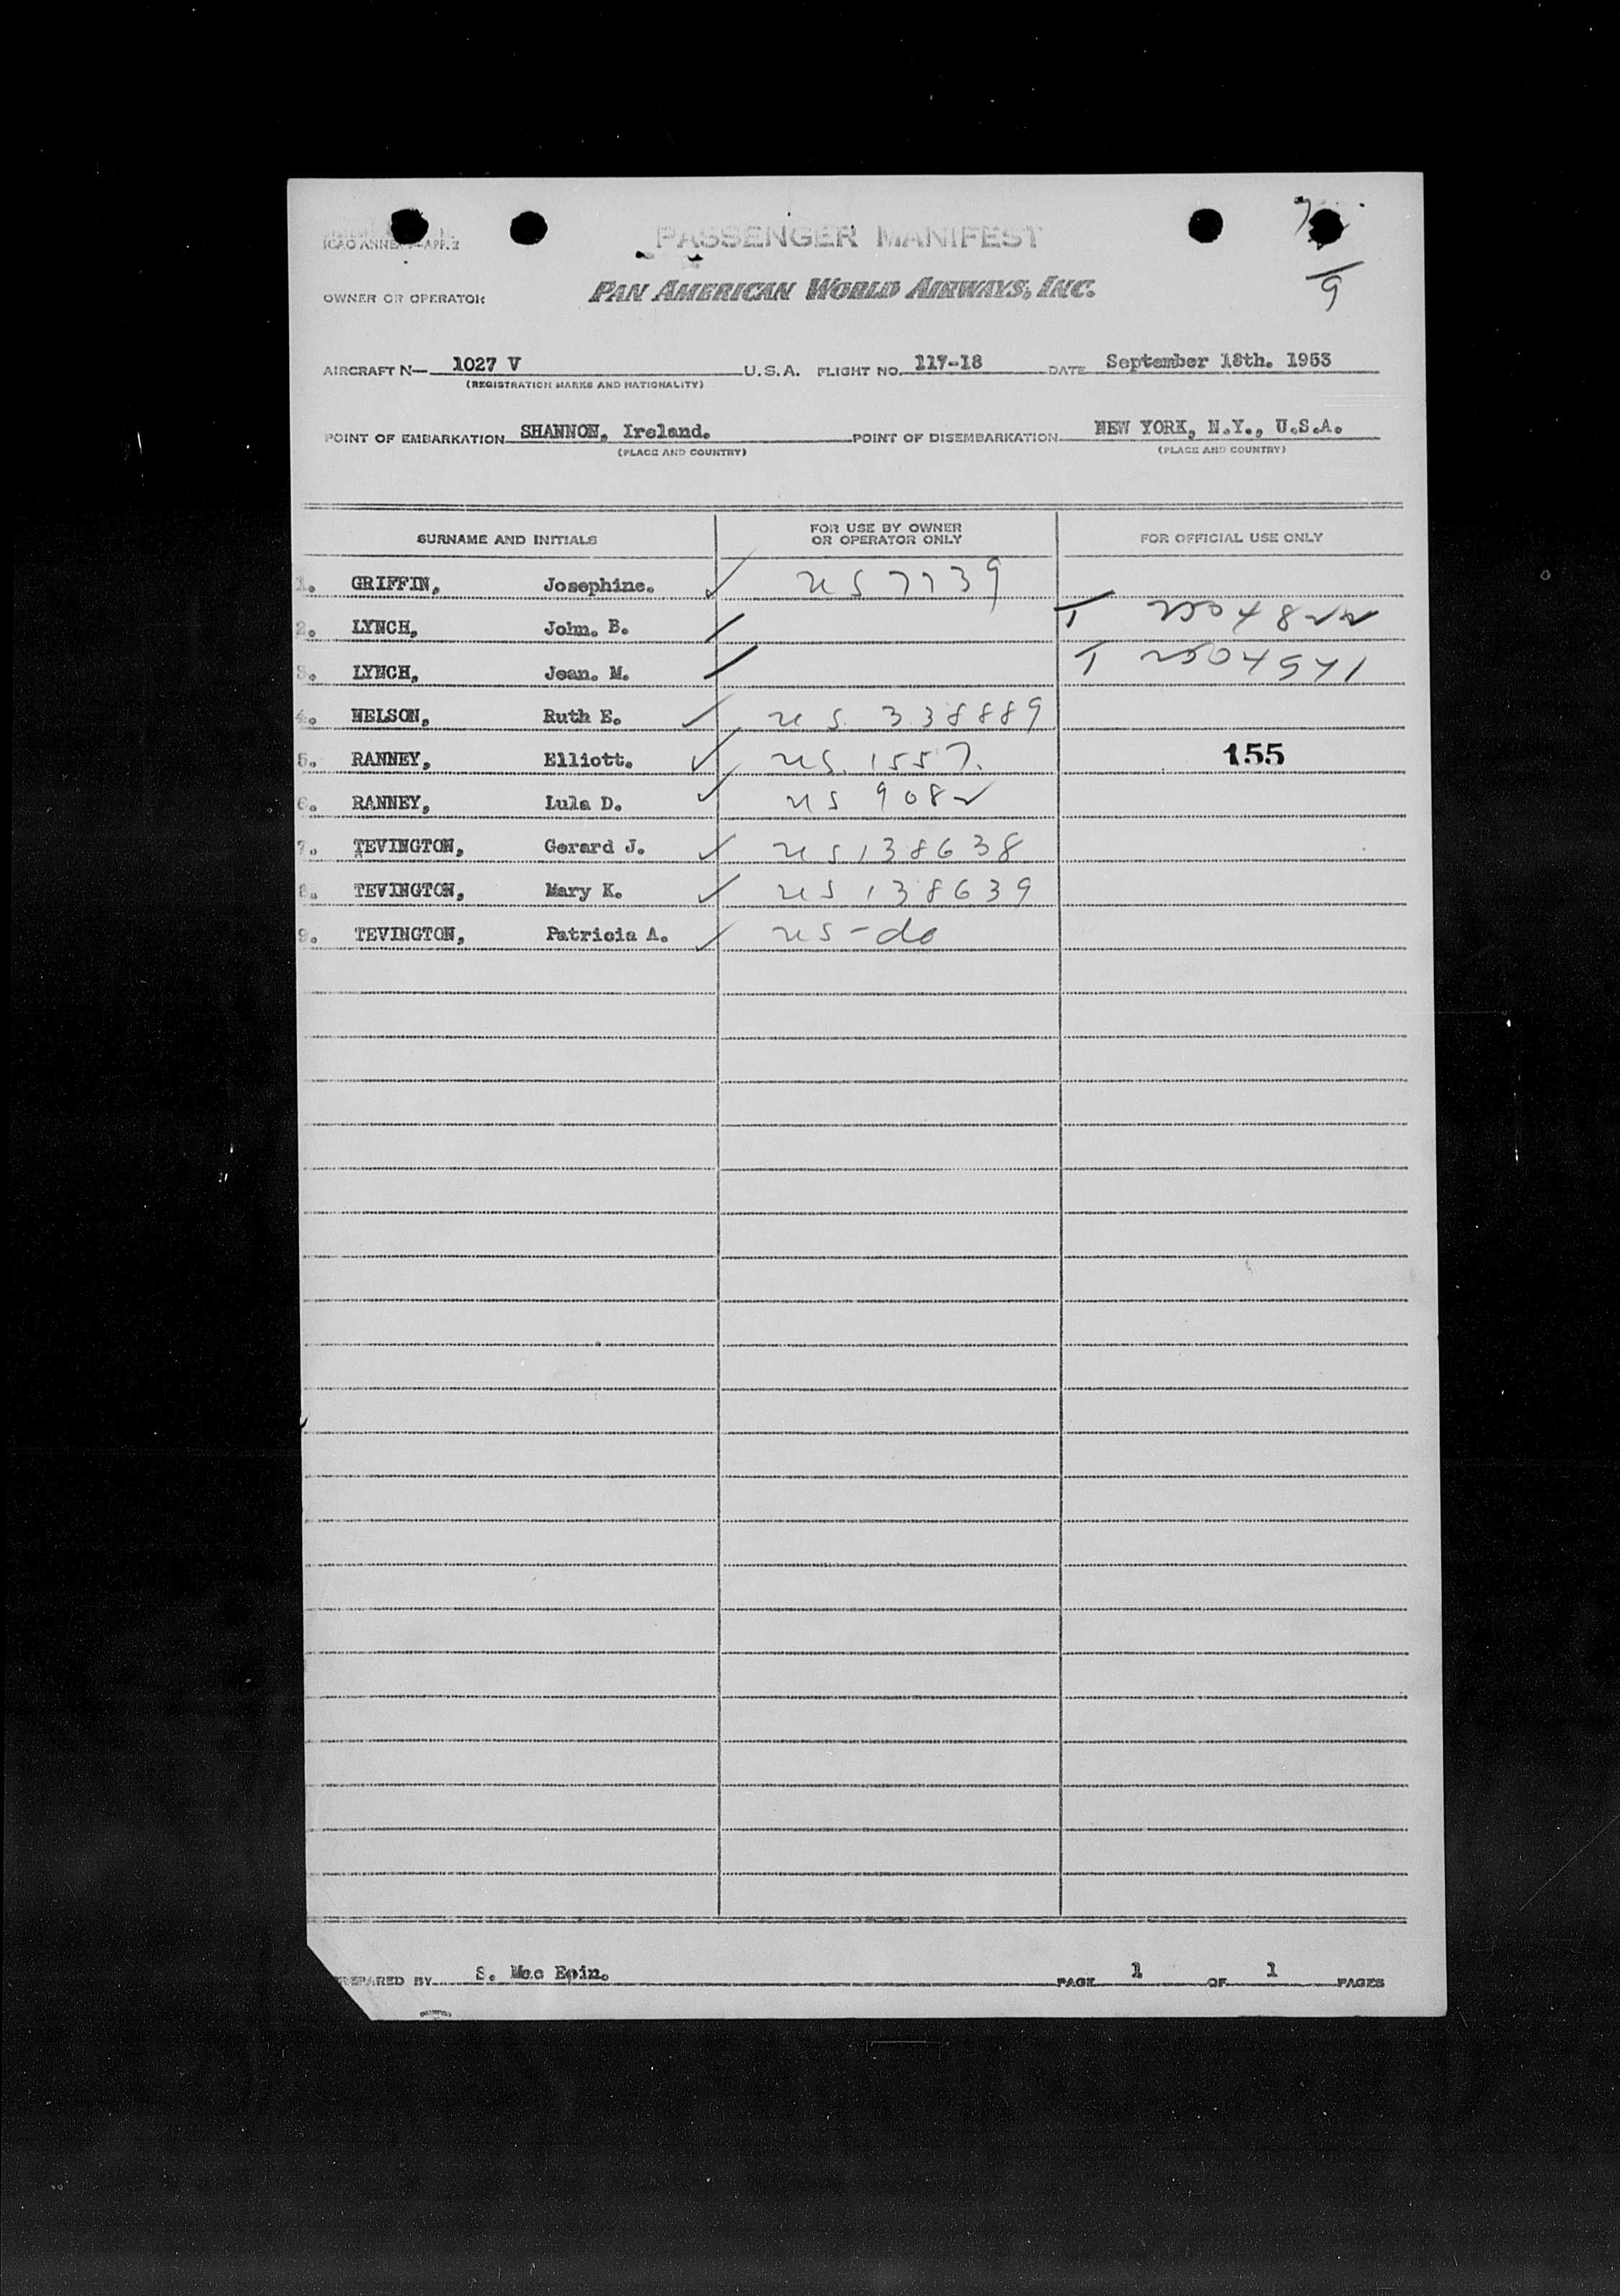 ICAO ANNEX 9-APP. 2
PASSENGER MANIFEST
9
OWNER OR OPERATOR PAN AMERICAN WORLD AIRWAYS, INC.
AIRCRAFT N— 1027 V U.S.A. FLIGHT NO. 117-18 DATE September 18th. 1953
(REGISTRATION MARKS AND NATIONALITY)
POINT OF EMBARKATION SHANNON, Ireland. POINT OF DISEMBARKATION NEW YORK, N.Y., U.S.A.
(PLACE AND COUNTRY) (PLACE AND COUNTRY)
SURNAME AND INITIALS FOR USE BY OWNER OR OPERATOR ONLY FOR OFFICIAL USE ONLY
1. GRIFFIN, Josephine. ✓ US 7739
2. LYNCH, John. B. / T 2504822
3. LYNCH, Jean. M. / T 2504541
4. NELSON, Ruth E. ✓ US 338889
5. RANNEY, Elliott. ✓ US. 1557. 155
6. RANNEY, Lula D. ✓ US 9082
7. TEVINGTON, Gerard J. ✓ US 138638
8. TEVINGTON, Mary K. ✓ US 138639
9. TEVINGTON, Patricia A. ✓ US - do
PREPARED BY S. Mac Eoin. PAGE 1 OF 1 PAGES